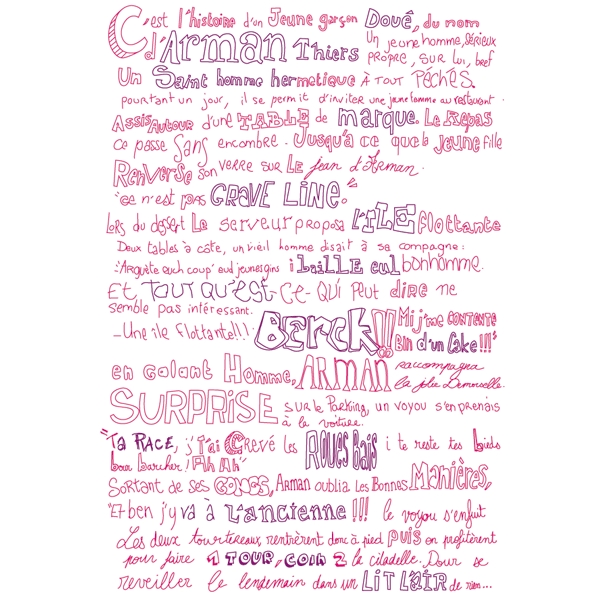 C'est l'histoire d'un Jeune garçon Doué, du nom
d'Arman Thiers Un jeune homme, sérieux
propre, sur lui, bref
Un Saint homme hermetique à tout péchés.
pourtant un jour, il se permit d'inviter une jeune femme au restaurant.
Assis Autour d'une TABLE de marque. Le Repas
ce passe Sans encombre. Jusqu'à ce que la jeune fille
Renverse son verre sur Le jean d'Arman.
"ce n'est pas GRAVE LINE."
Lors du dessert Le serveur proposa l'ILE flottante
Deux tables à côte, un vieil homme disait à sa compagne:
"Arguête euch coup' eud jeunes gins i baille eul bonhomme.
Et Tout qu'est-ce-qui peut dire ne
semble pas intéressant.
-Une ile flottante!!! Berck!! Mi j'me contente
Bin d'un Cake!!!"
en galant Homme, ARMAN raccompagna
la jolie Demoiselle.
SURPRISE sur le Parking, un voyou s'en prenais
à la voiture.
"Ta RACE, j't'ai Crevé les ROUES Bais i te reste tes bieds
bour barcher! Ah Ah"
Sortant de ses GONGS, Arman oublia les Bonnes Manières,
"Et ben j'y va à L'ancienne!!! le voyou s'enfuit
Les deux tourtereaux, rentrèrent donc à pied puis en profitèrent
pour faire 1 TOUR, COIN 2 la citadelle. Pour se
reveiller le lendemain dans un LIT L'AIR de rien...